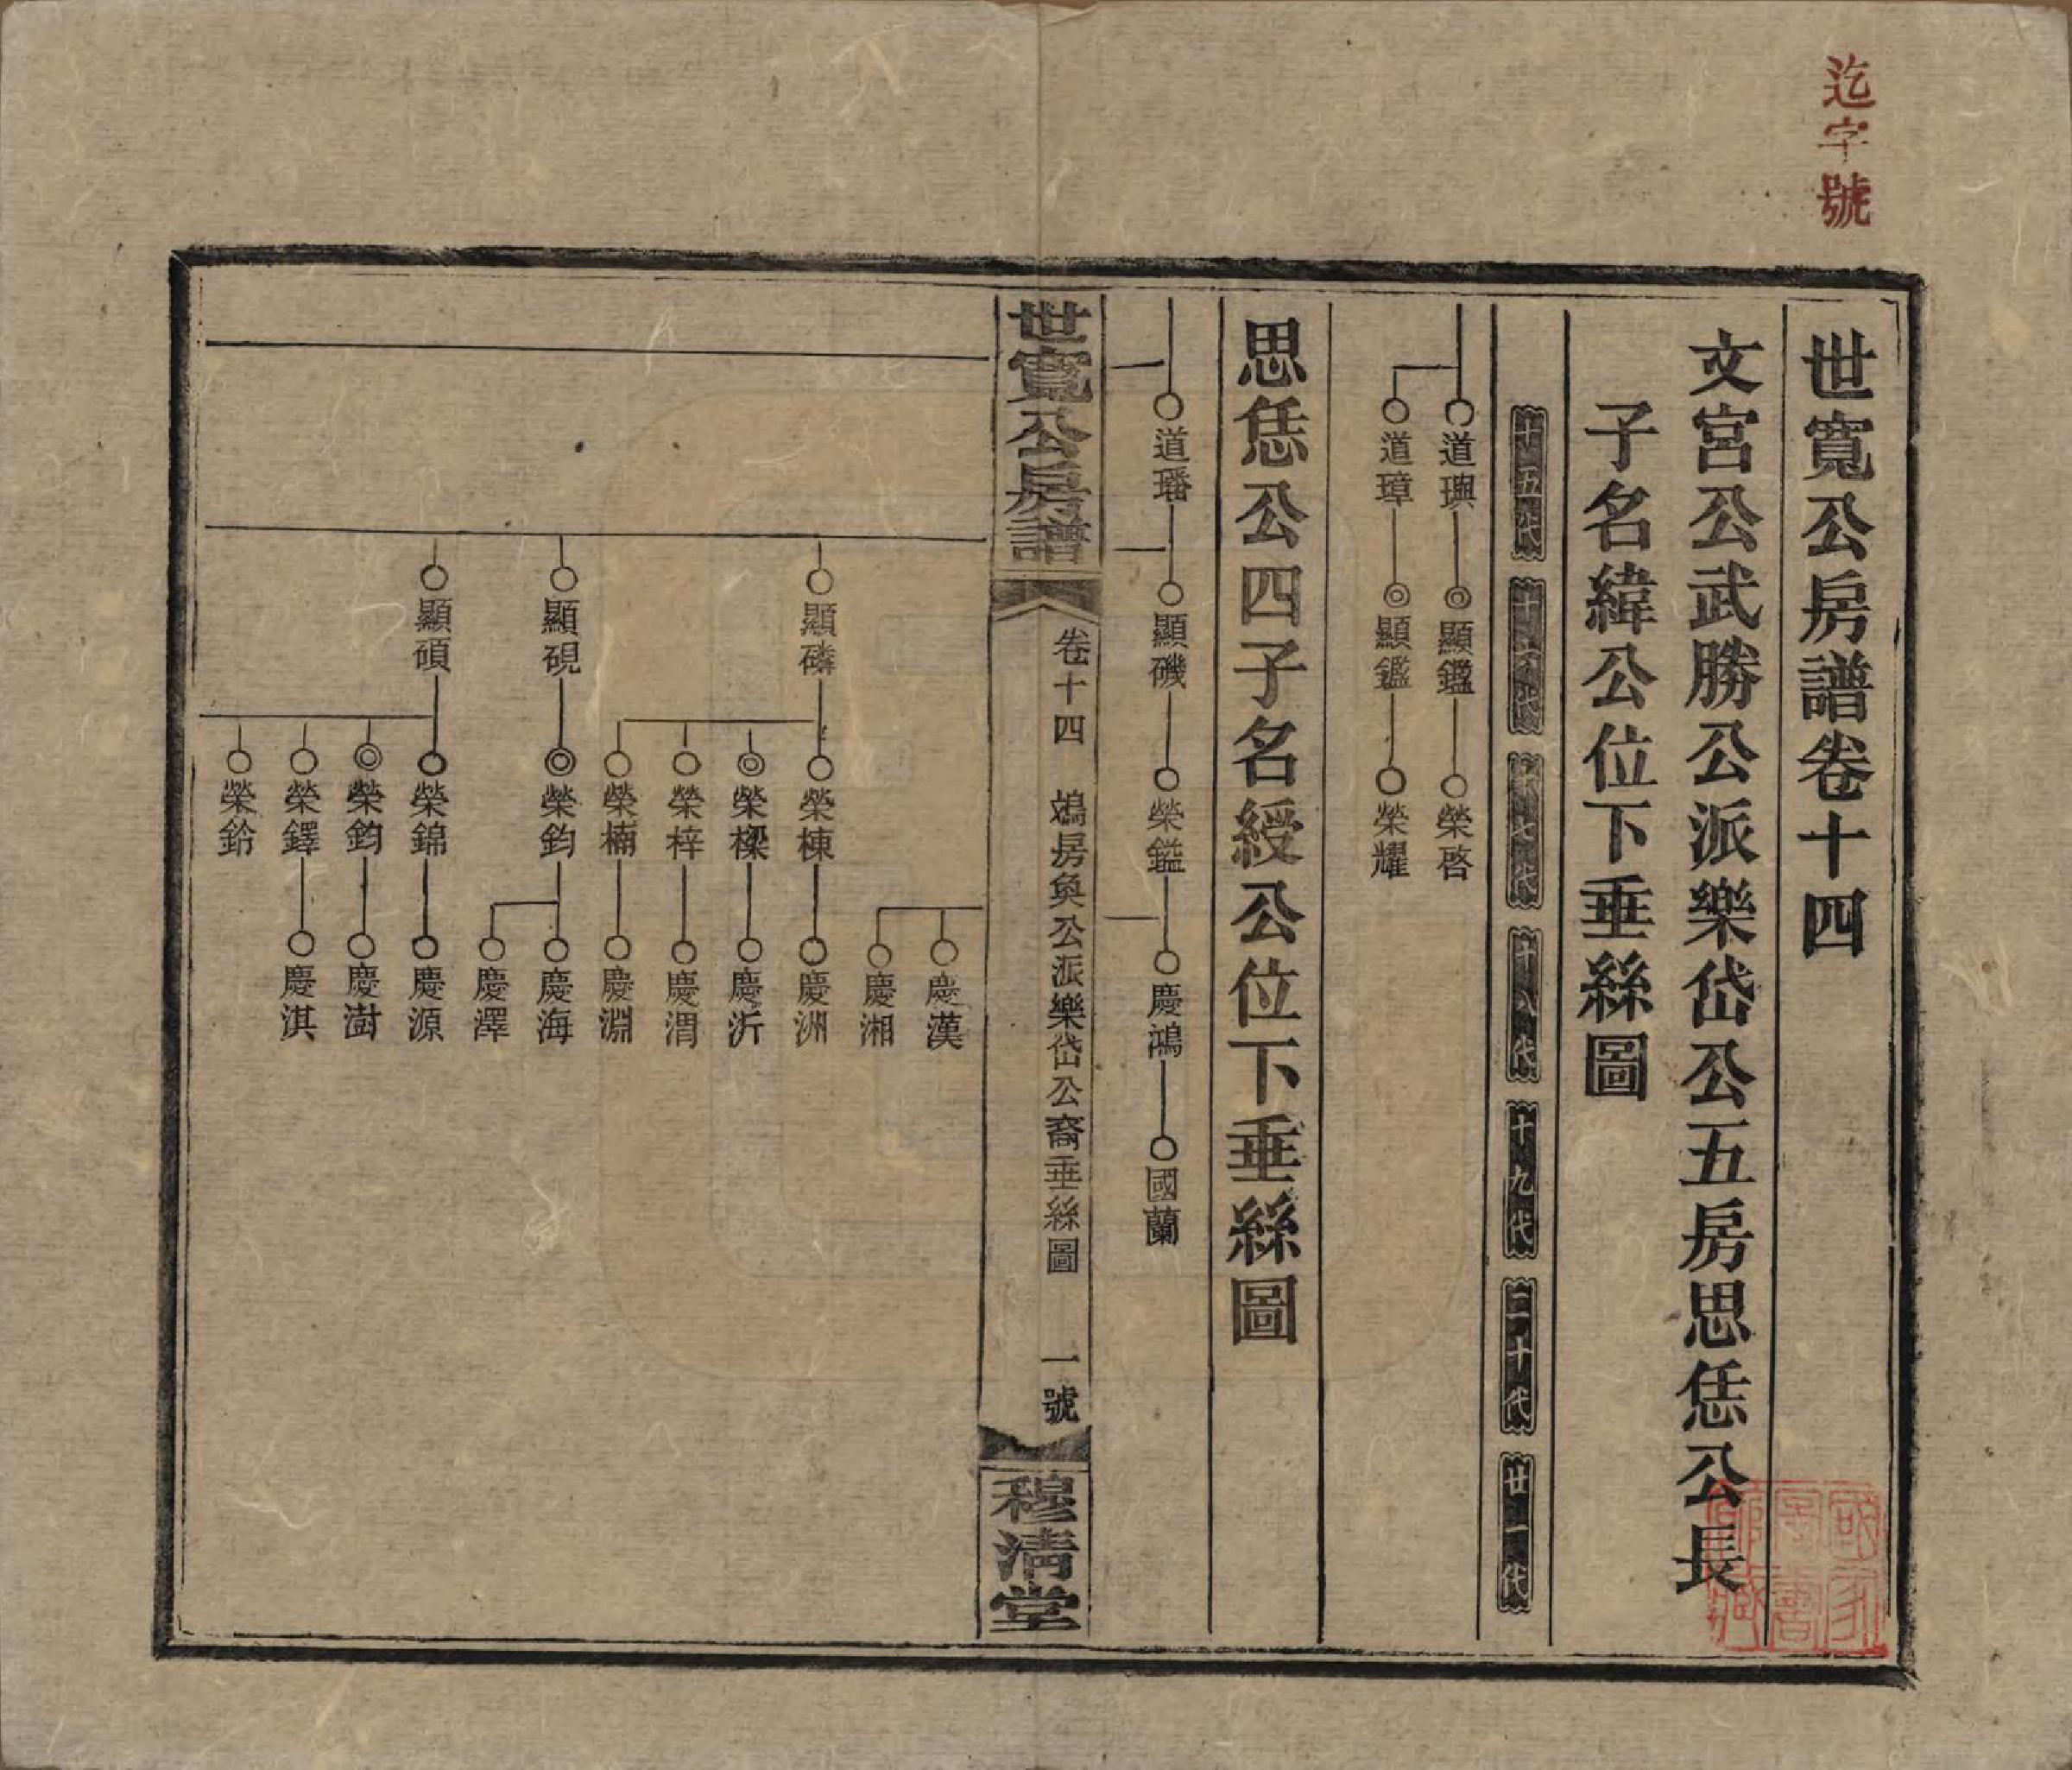 迄字號
世寬公房譜卷十四
文宮公武勝公派樂岱公五房思恁公長
子名緯公位下垂絲圖
十五代 十六代 十七代 十八代 十九代 二十代 廿一代
道璵 顯鑑 榮啓
道璋 顯鑑 榮耀
思恁公四子名綬公位下垂絲圖
道璠 顯磯 榮鎰 慶鴻 國蘭
世寬公房譜 卷十四 鴆房奐公派樂岱公裔垂絲圖 一號 穆清堂
慶漢
慶湘
顯磷 榮棟 慶洲
榮樑 慶沂
榮梓 慶渭
榮楠 慶淵
顯硯 榮鈞 慶海
慶澤
顯碩 榮錦 慶源
榮鈞 慶澍
榮鐸 慶淇
榮鈴
國家圖書館藏